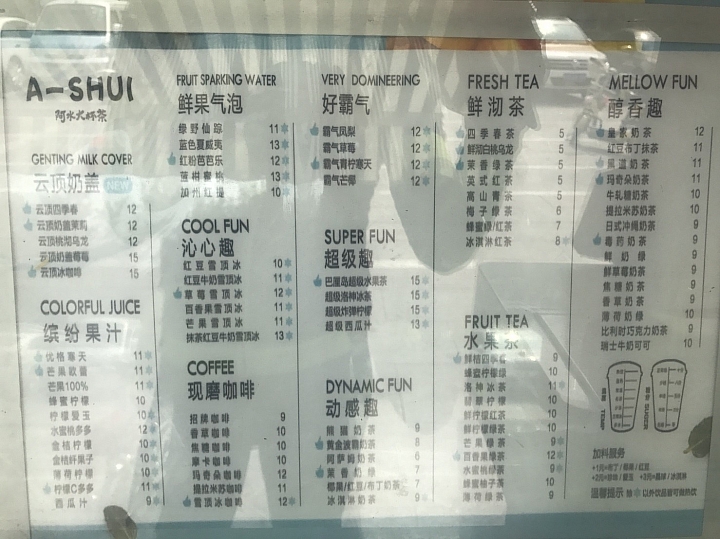 A-SHUI
阿水大杯茶
GENTING MILK COVER
云顶奶盖 NEW
云顶四季春 12
云顶奶盖茉莉 12
云顶桃沏乌龙 12
云顶奶盖莓莓 15
云顶冰咖啡 15
COLORFUL JUICE
缤纷果汁
优格寒天 11
芒果欧蕾 11
芒果100% 11
蜂蜜柠檬 10
柠檬爱玉 10
水蜜桃多多 12
金桔柠檬 10
金桔纤果子 10
薄荷柠檬 10
柠檬C多多 11
西瓜汁 9
FRUIT SPARKING WATER
鲜果气泡
绿野仙踪 11
蓝色夏威夷 13
红粉芭芭乐 12
蓝柑蜜桃 13
加州红提 10
COOL FUN
沁心趣
红豆雪顶冰 10
红豆牛奶雪顶冰 11
草莓雪顶冰 12
百香果雪顶冰 11
芒果雪顶冰 11
抹茶红豆牛奶雪顶冰 13
COFFEE
现磨咖啡
招牌咖啡 9
香草咖啡 10
焦糖咖啡 10
摩卡咖啡 10
玛奇朵咖啡 12
提拉米苏咖啡 11
雪顶冰咖啡 12
VERY DOMINEERING
好霸气
霸气凤梨 12
霸气草莓 12
霸气青柠寒天 12
霸气芒椰 12
SUPER FUN
超级趣
巴厘岛超级水果茶 15
超级洛神冰茶 15
超级炸弹柠檬 15
超级西瓜汁 13
DYNAMIC FUN
动感趣
熊猫奶茶 9
黄金波霸奶茶 8
阿萨姆奶茶 6
茉香奶绿 7
椰果/红豆/布丁奶茶 7
冰淇淋奶茶 9
FRESH TEA
鲜沏茶
四季春茶 5
鲜沏白桃乌龙 5
茉香绿茶 5
英式红茶 5
高山青茶 5
梅子绿茶 6
蜂蜜绿/红茶 7
冰淇淋红茶 8
FRUIT TEA
水果茶
鲜桔四季春 9
蜂蜜柠檬绿 10
洛神冰茶 11
翡翠柠檬 10
鲜柠檬红茶 10
鲜柠檬绿茶 10
芒果绿茶 9
百香果绿茶 12
水蜜桃绿茶 9
蜂蜜柚子茶 10
薄荷绿茶 9
MELLOW FUN
醇香趣
皇家奶茶 12
红豆布丁抹茶 11
黑道奶茶 11
玛奇朵奶茶 11
牛轧糖奶茶 10
提拉米苏奶茶 10
日式冲绳奶茶 9
毒药奶茶 9
鲜奶绿 9
鲜草莓奶茶 9
焦糖奶茶 9
香草奶茶 9
薄荷奶绿 10
比利时巧克力奶茶 9
瑞士牛奶可可 10
加料服务
+1元=布丁/椰果/红豆
+2元=咖啡/爱玉 +3元=晶球/冰淇淋
温馨提示 除 以外饮品皆可做热饮